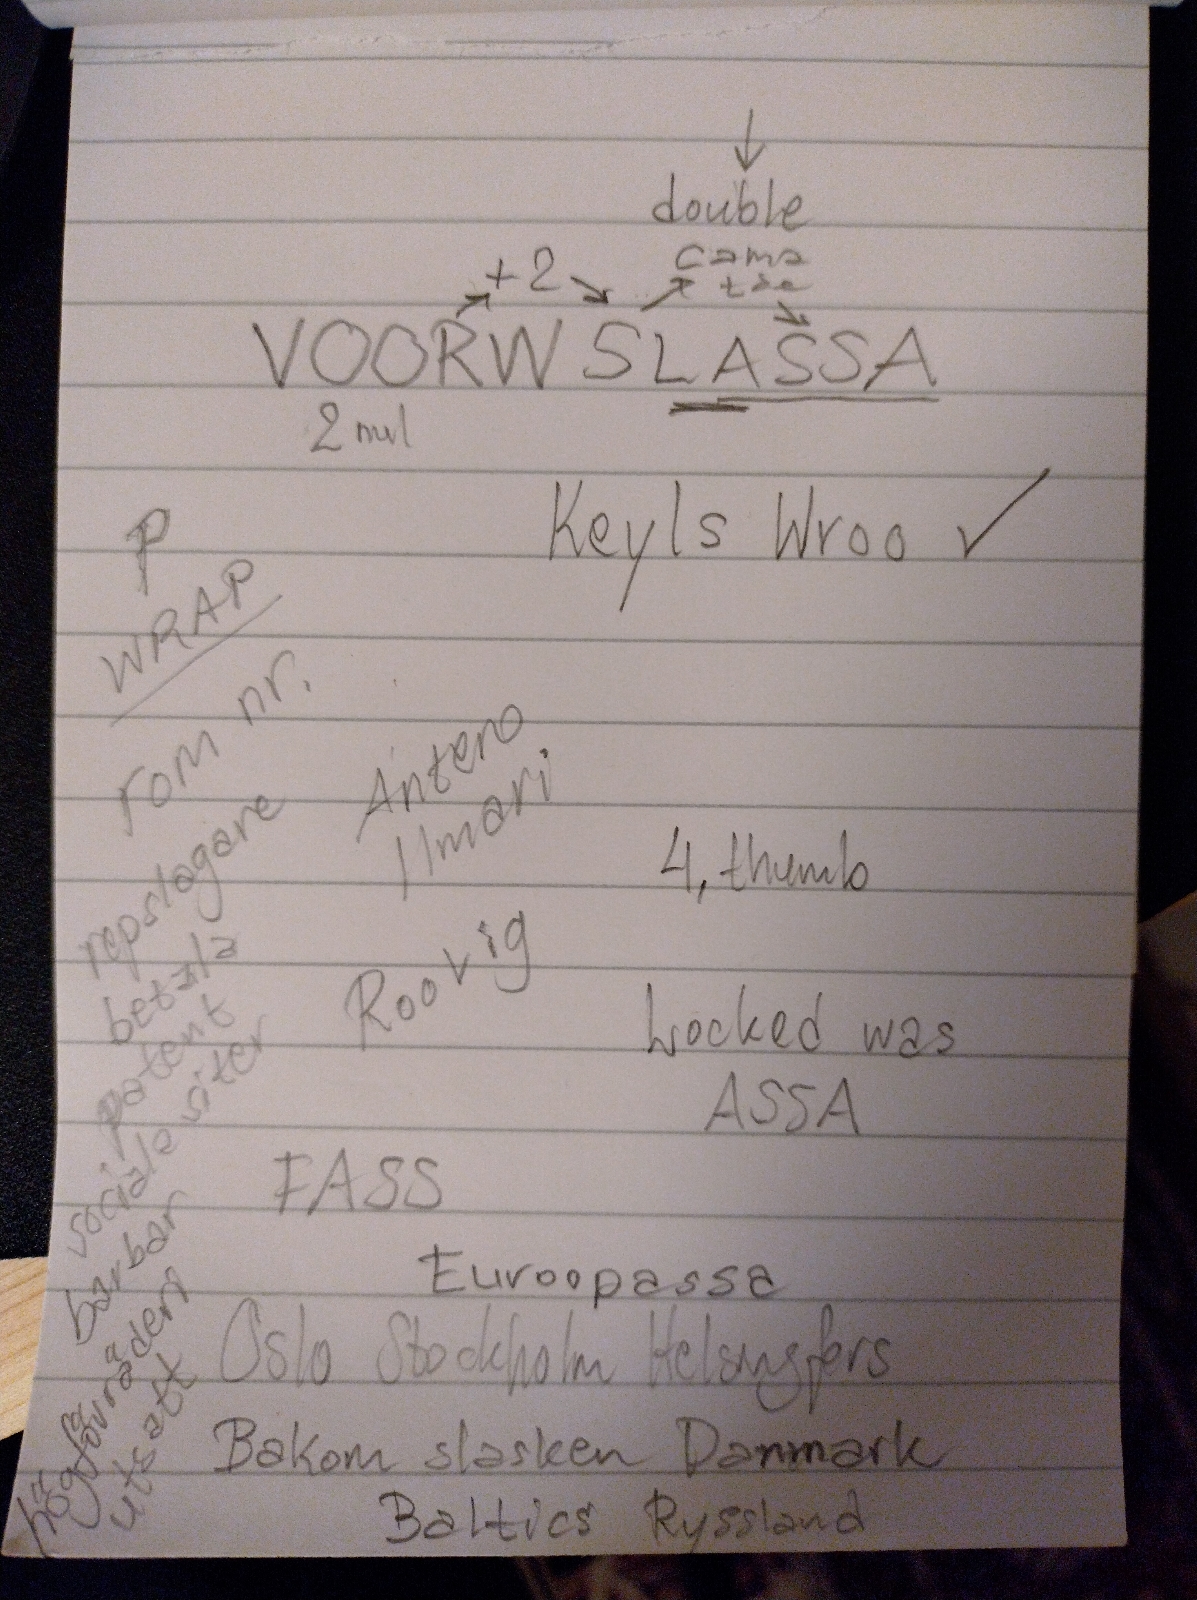 double
cama
+2 tse
VOORW SLASSA
2 mul
Keyls Wroo ✓
P
WRAP
rom nr.
Antero
Ilmari
repslagare
4, thumb
betala
Roovig
patent
Locked was
sociala siter
ASSA
FASS
barbar
Euroopassa
högförräderi
Oslo Stockholm Helsingfors
utsatt
Bakom slasken Danmark
Baltics Ryssland